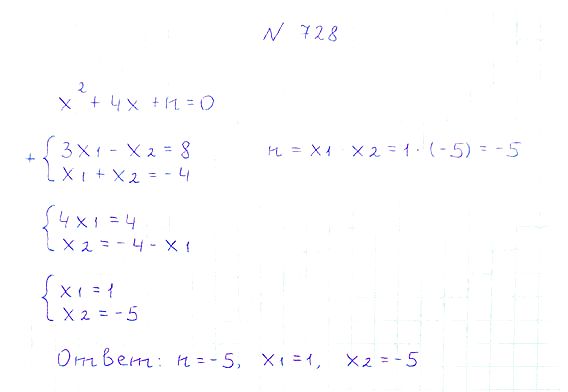 N 728
x² + 4x + n = 0
+ { 3x1 - x2 = 8
x1 + x2 = -4
n = x1 x2 = 1 · (-5) = -5
{ 4x1 = 4
x2 = -4 - x1
{ x1 = 1
x2 = -5
Ответ: n = -5, x1 = 1, x2 = -5